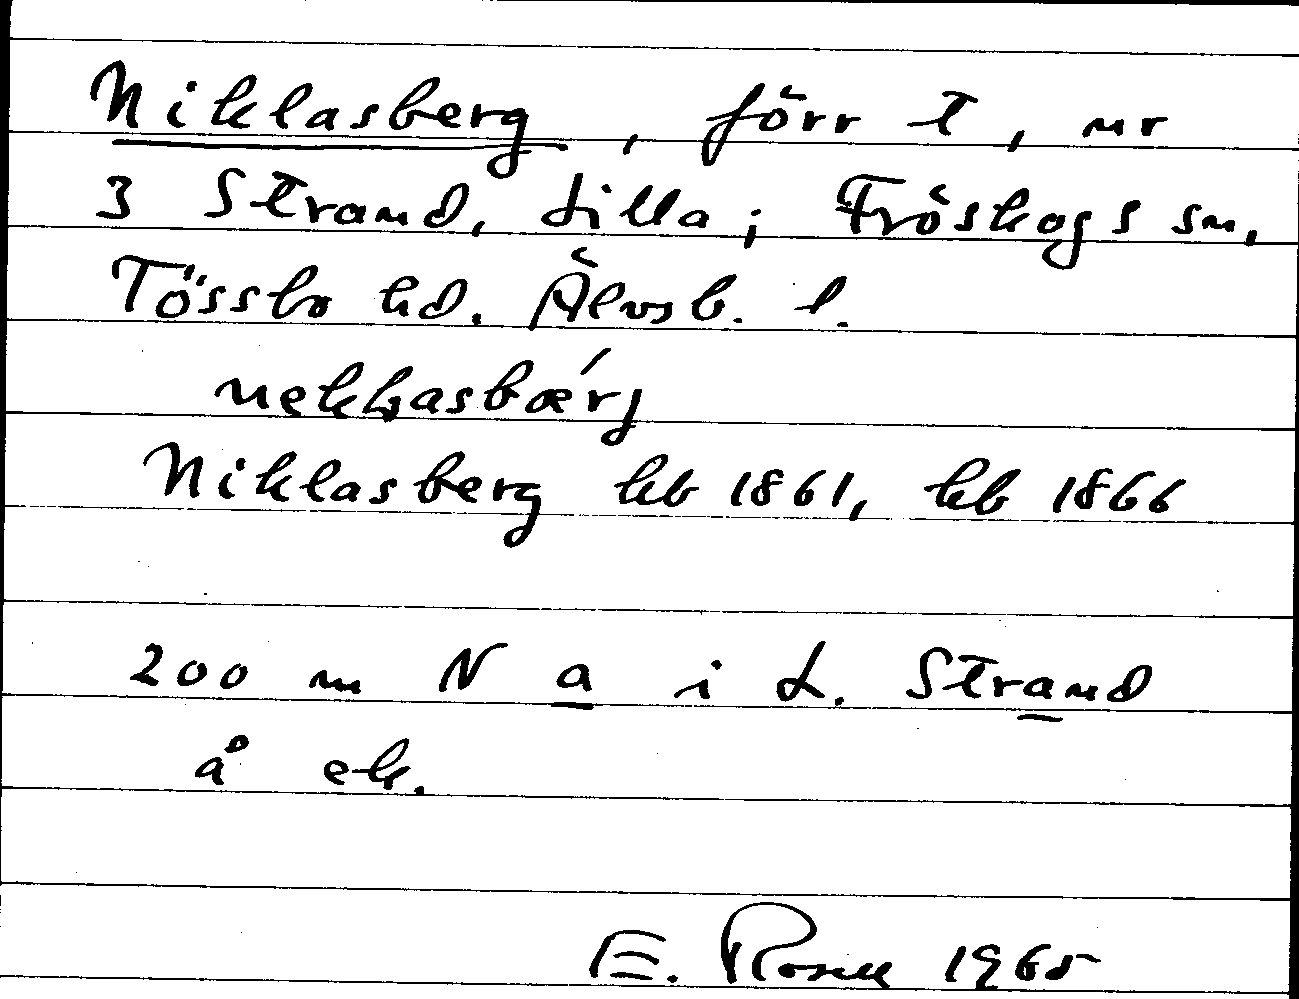 Niklasberg, förr t, nr
3 Strand, Lilla; Fröskogs sn,
Tössbo hd. Älvsb. l.
Niklasberg hb 1861, hb 1866
200 m N a i L. Strand
å ek.
E. Rosell 1965